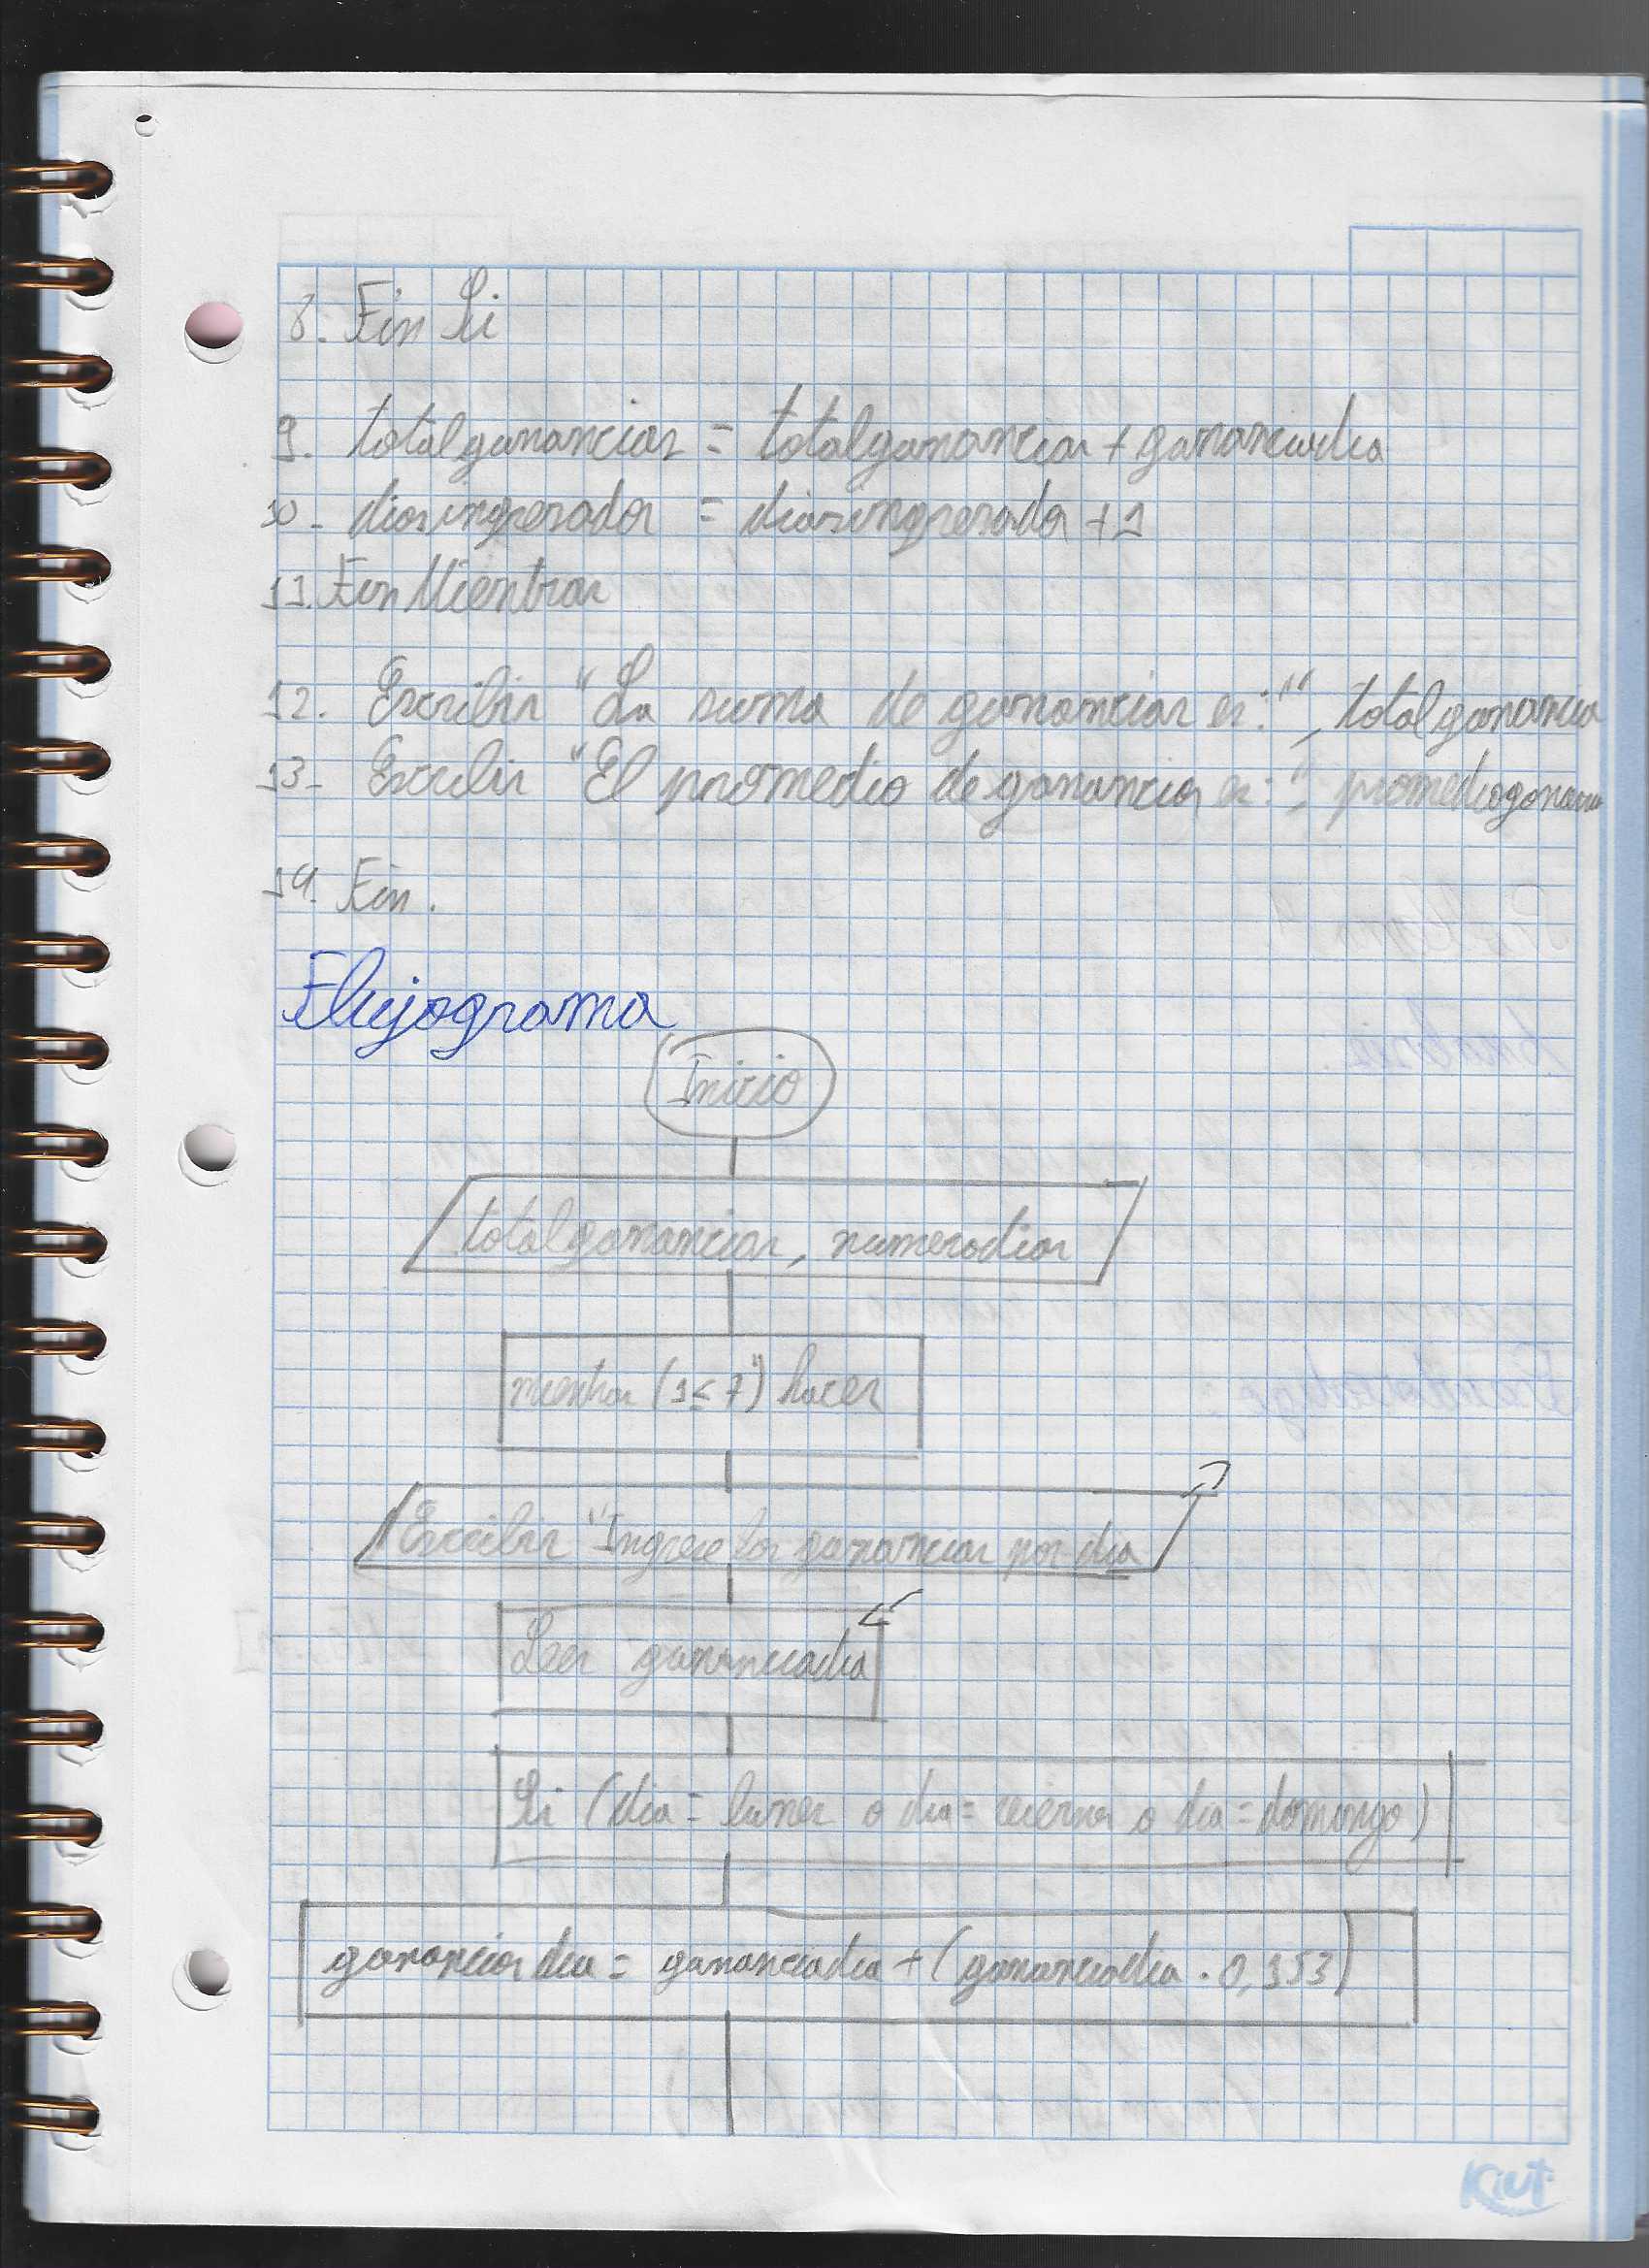 8. Fin Si
9. totalganancias = totalganancias + gananciadia
10- diasingresados = diasingresados + 1
11. Fin Mientras
12. Escribir "La suma de ganancias es:", totalganancia
13- Escribir "El promedio de ganancias es:",
14. Fin.
Flujograma
Inicio
totalganancias, numerodias
mientras (1≤7) hacer
Escribir "Ingrese las ganancias por dia
Leer gananciadia
Si (dia = lunes o dia = viernes o dia = domingo)
ganancias dia = gananciadia + (gananciadia . 0,153)
Kiut